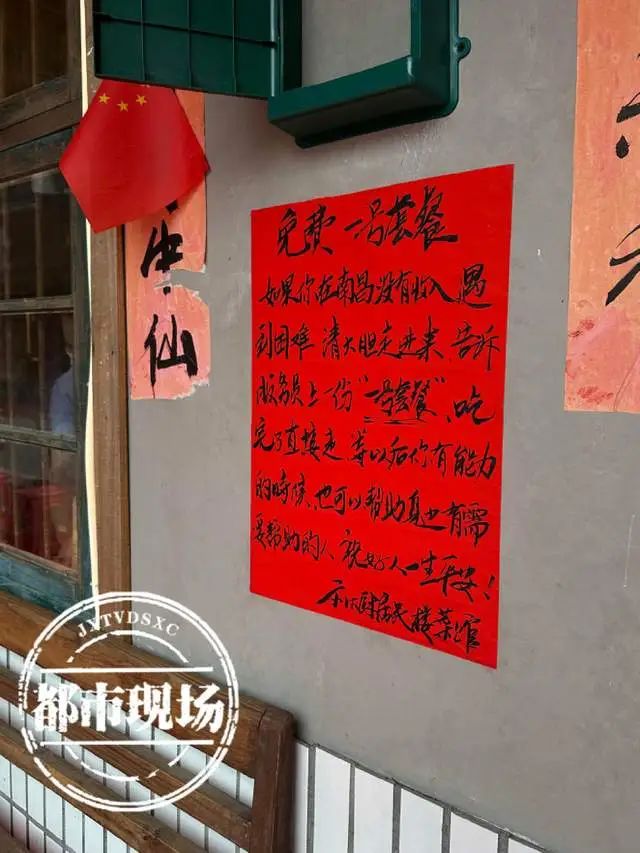 免费一号套餐
如果你在南昌没有收入遇
到困难.请大胆走进来、告诉
服务员上一份"一号套餐"、吃
完了直接走、等以后你有能力
的時候、也可以帮助身边有需
要帮助的人、祝好人一生平安!
民楼菜馆
仙
JXTVDSXC
都市现场